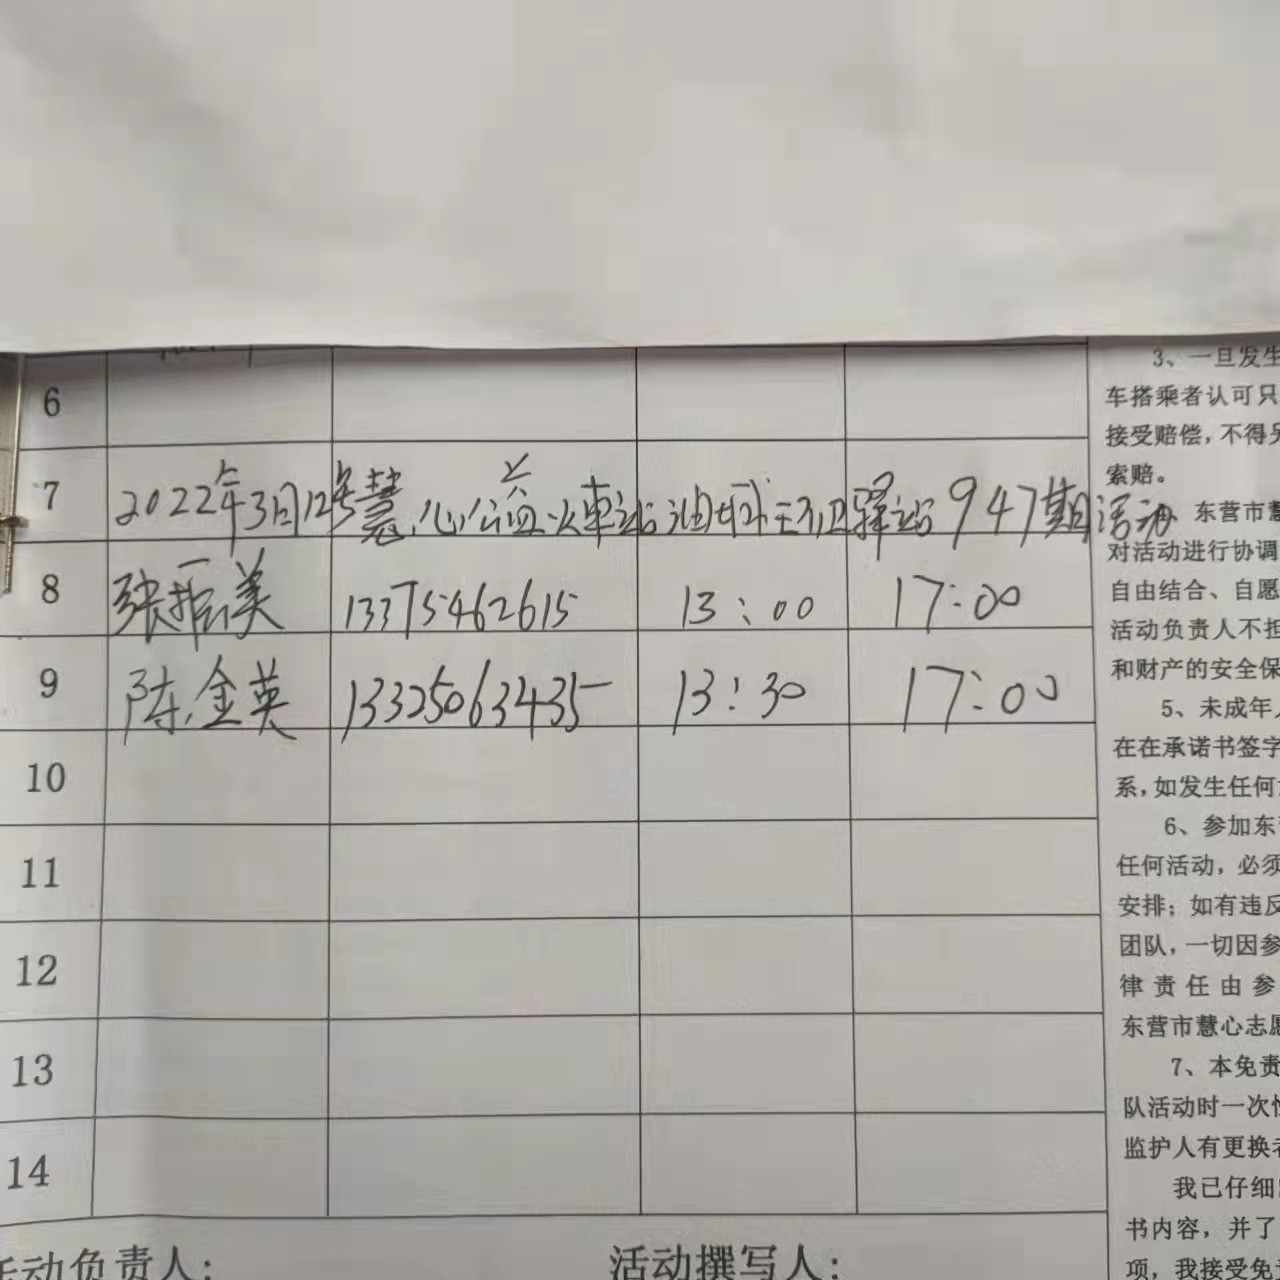 6
7 2022年3月12号慧心公益火車站油城王卫驿站947期活动
8 张振美 13375462615 13:00 17:00
9 陈金英 13325063435 13:30 17:00
10
11
12
13
14
活动负责人:
活动撰写人:
3、一旦发生
车搭乘者认可只
接受赔偿,不得另
索赔。
东营市慧
对活动进行协调
自由结合、自愿
活动负责人不担
和财产的安全保
5、未成年人
在在承诺书签字
系,如发生任何
6、参加东营
任何活动,必须
安排;如有违反
团队,一切因参
律责任由参
东营市慧心志愿
7、本免责
队活动时一次性
监护人有更换者
我已仔细
书内容,并了
项,我接受免责